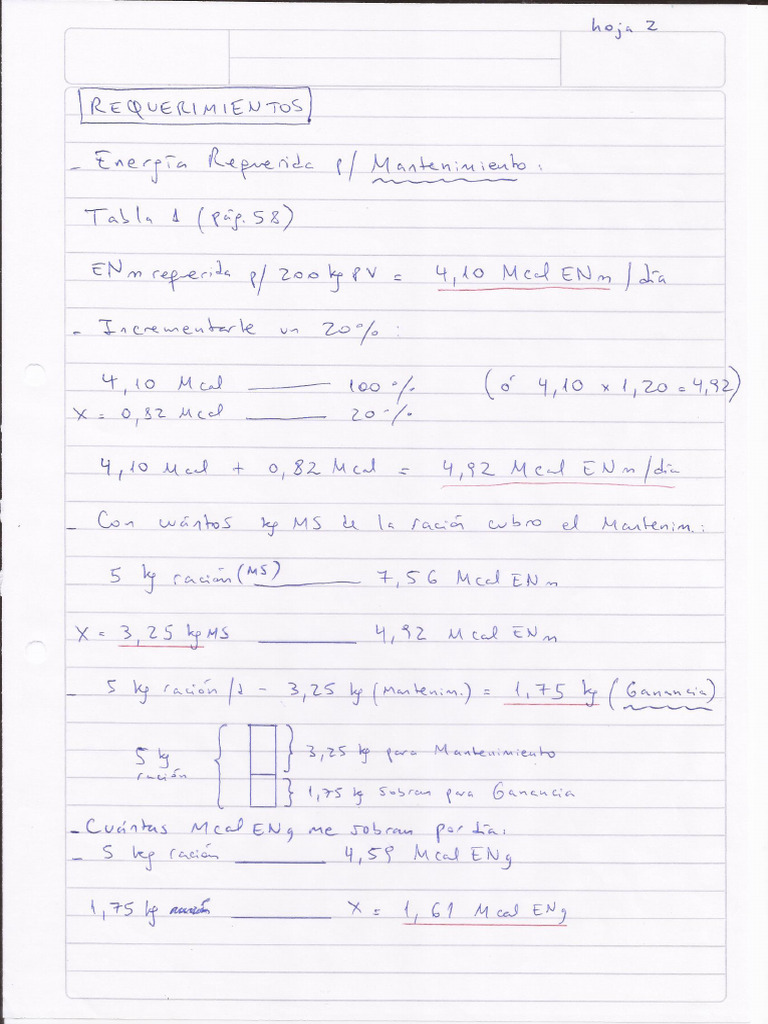 hoja 2
REQUERIMIENTOS
- Energía Requerida p/ Mantenimiento:
Tabla 1 (pág. 58)
ENm requerida p/ 200 kg PV = 4,10 Mcal ENm / día
- Incrementarle un 20%:
4,10 Mcal ——— 100% (ó 4,10 x 1,20 = 4,92)
X = 0,82 Mcal ——— 20%
4,10 Mcal + 0,82 Mcal = 4,92 Mcal ENm/día
- Con cuántos kg MS de la ración cubro el Mantenim.:
5 kg ración (MS) ——— 7,56 Mcal ENm
X = 3,25 kg MS ——— 4,92 Mcal ENm
- 5 kg ración /d - 3,25 kg (Mantenim.) = 1,75 kg (Ganancia)
5 kg ración { } 3,25 kg para Mantenimiento
} 1,75 kg sobran para Ganancia
- Cuántas Mcal ENg me sobran por día:
- 5 kg ración ——— 4,59 Mcal ENg
1,75 kg ración ——— X = 1,61 Mcal ENg